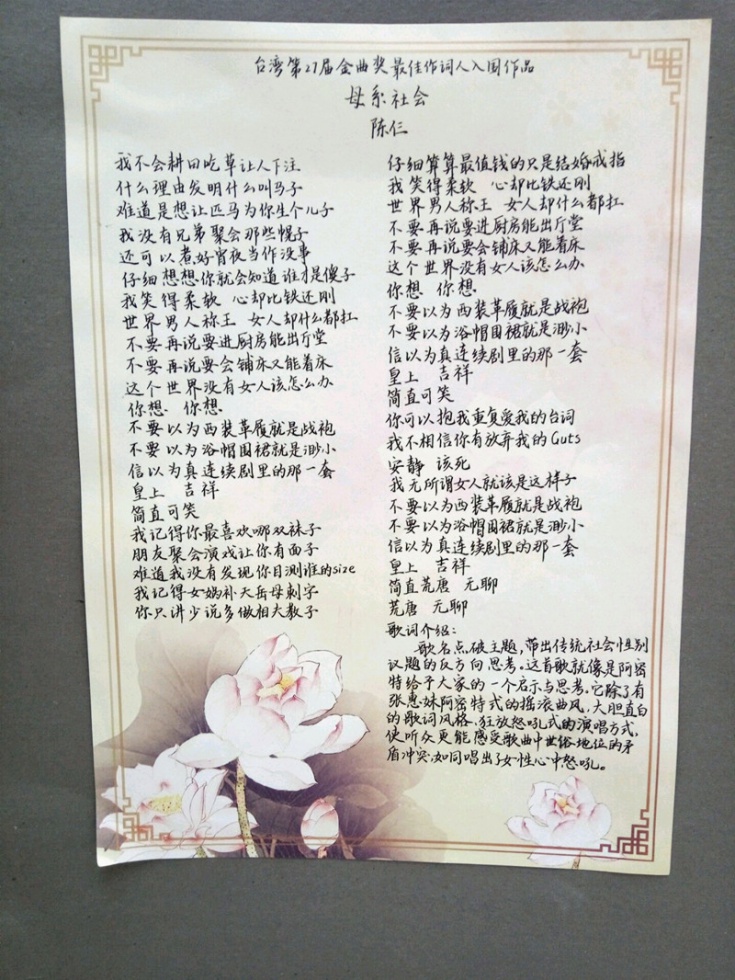 台湾第27届金曲奖最佳作词人入围作品
母系社会
陈仁
我不会耕田吃草让人下注
什么理由发明什么叫马子
难道是想让匹马为你生个儿子
我没有兄弟聚会那些幌子
还可以煮好宵夜当作没事
仔细想想你就会知道谁才是傻子
我笑得柔软 心却比铁还刚
世界男人称王 女人却什么都扛
不要再说要进厨房能出厅堂
不要再说要会铺床又能着床
这个世界没有女人该怎么办
你想 你想
不要以为西装革履就是战袍
不要以为浴帽围裙就是渺小
信以为真连续剧里的那一套
皇上 吉祥
简直可笑
我记得你最喜欢哪双袜子
朋友聚会演戏让你有面子
难道我没有发现你目测谁的size
我记得女娲补天岳母刺字
你只讲少说多做相夫教子
仔细算算最值钱的只是结婚戒指
我笑得柔软 心却比铁还刚
世界男人称王 女人却什么都扛
不要再说要进厨房能出厅堂
不要再说要会铺床又能着床
这个世界没有女人该怎么办
你想 你想
不要以为西装革履就是战袍
不要以为浴帽围裙就是渺小
信以为真连续剧里的那一套
皇上 吉祥
简直可笑
你可以抱我重复爱我的台词
我不相信你有放弃我的Guts
安静 该死
我无所谓女人就该是这样子
不要以为西装革履就是战袍
不要以为浴帽围裙就是渺小
信以为真连续剧里的那一套
皇上 吉祥
简直荒唐 无聊
荒唐 无聊
歌词介绍：
歌名点破主题，带出传统社会性别
议题的反方向思考。这首歌就像是阿密
特给予大家的一个启示与思考。它除了有
张惠妹阿密特式的摇滚曲风，大胆直白
的歌词风格，狂放怒吼式的演唱方式，
使听众更能感受歌曲中世俗地位的矛
盾冲突，如同唱出了女性心中怒吼。